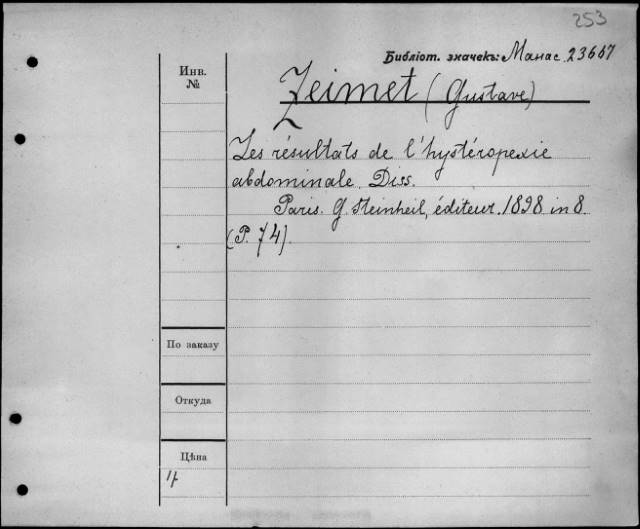 253
Библіот. значекъ: Манас 23667
Инв.
№
Zeimet (Gustave)
Les résultats de l'hystéropexie
abdominale. Diss.
Paris. G. Steinheil, éditeur. 1898 in 8.
(P. 74).
По заказу
Откуда
Цѣна